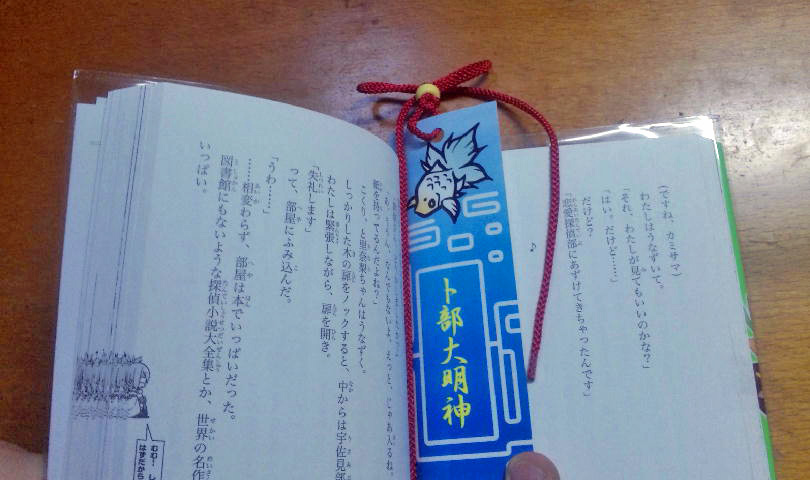 (ですね、カミサマ)
わたしはうなずいて。
「それ、わたしが見てもいいのかな?」
「はい。だけど……」
だけど?
「恋愛探偵部にあずけてきちゃったんです」
♪
卜部大明神
紙を持ってるんだよね?」
こくり、と里奈梨ちゃんはうなずく。
しっかりした木の扉をノックすると、中からは宇佐見部
わたしは緊張しながら、扉を開き。
「失礼します」
って、部屋にふみ込んだ。
「うわ……」
……相変わらず、部屋は本でいっぱいだった。
図書館にもないような探偵小説大全集とか、世界の名作
いっぱい。
むむ!し
はずだから